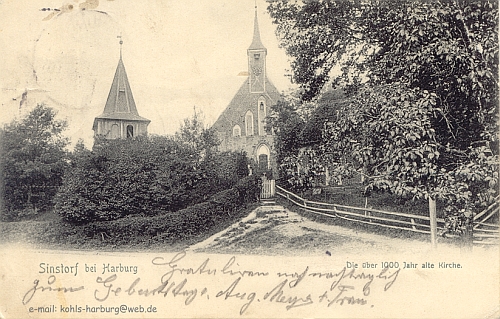 Sinstorf bei Harburg
Die über 1000 Jahr alte Kirche.
Gratuliren noch nachträglich
zum Geburtstage, Aug. Meyer u Frau.
e-mail: kohls-harburg@web.de